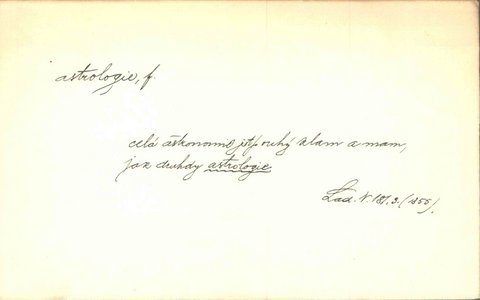 astrologie, f.
celá astronomie jest pouhý klam a mam,
jak druhdy astrologie
Lad. V. 187.3. (1855).